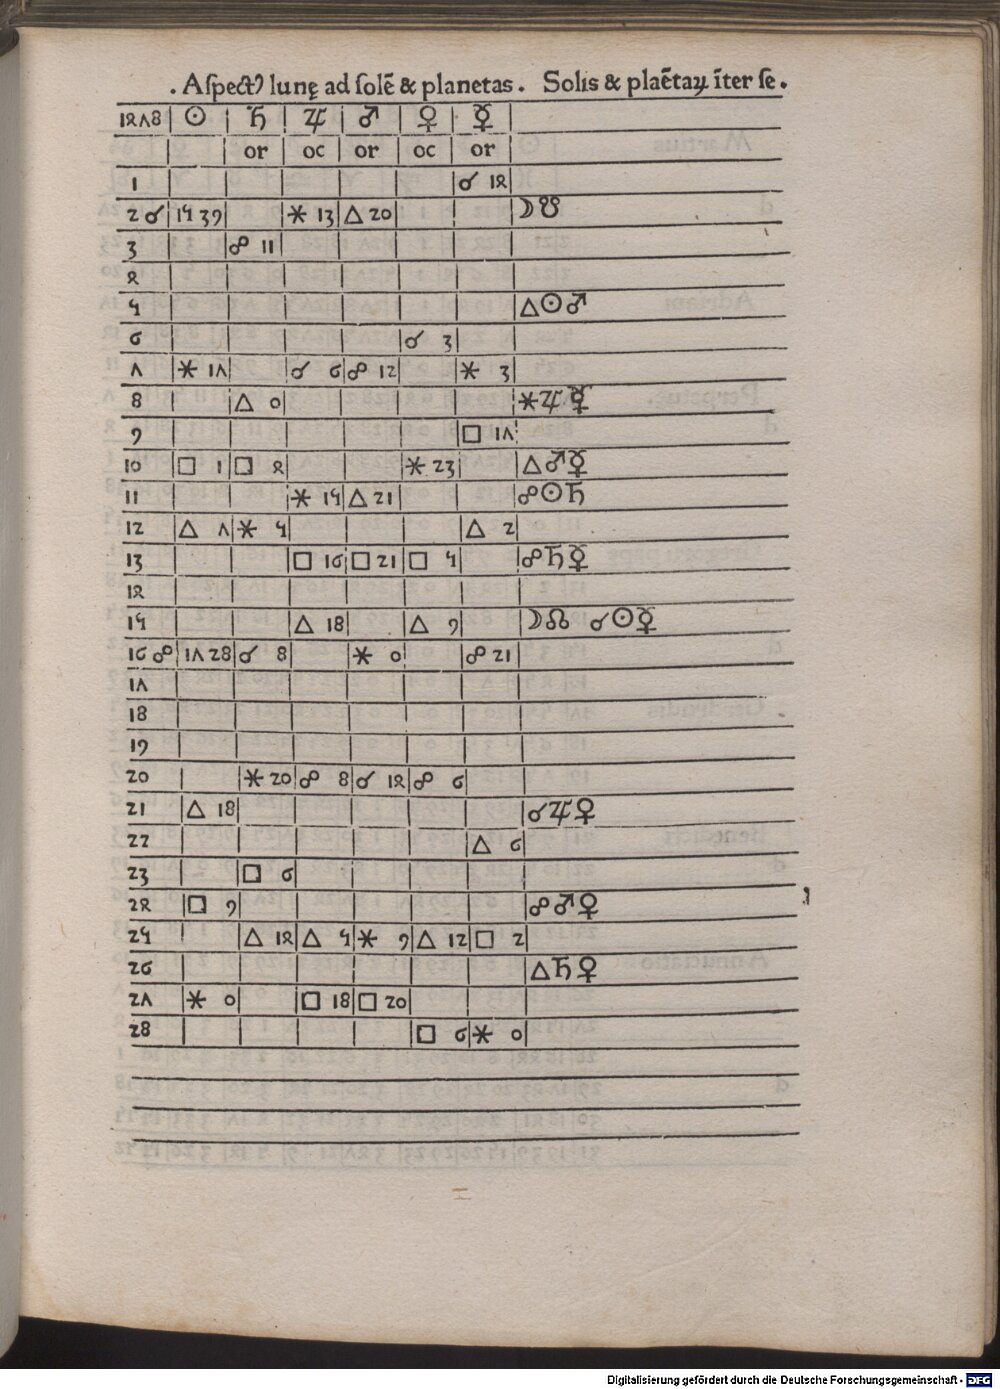 . Aſpectꝰ lunę ad ſolē & planetas . Solis & plaētaꝝ īter ſe .
1478 ☉ ♄ ♃ ♂ ♀ ☿
or oc or oc or
1 ☌ 14
2 ☌ 15 39 ⚹ 13 △ 20 ☽☋
3 ☍ 11
4
5 △☉♂
6 ☌ 3
7 ⚹ 17 ☌ 6 ☍ 12 ⚹ 3
8 △ 0 ⚹♃☿
9 □ 17
10 □ 1 □ 4 ⚹ 23 △♂☿
11 ⚹ 15 △ 21 ☍☉♄
12 △ 7 ⚹ 5 △ 2
13 □ 16 □ 21 □ 5 ☍♄☿
14
15 △ 18 △ 9 ☽☊ ☌☉☿
16 ☍ 17 28 ☌ 8 ⚹ 0 ☍ 21
17
18
19
20 ⚹ 20 ☍ 8 ☌ 14 ☍ 6
21 △ 18 ☌♃♀
22 △ 6
23 □ 6
24 □ 9 ☍♂♀
25 △ 14 △ 5 ⚹ 9 △ 12 □ 2
26 △♄♀
27 ⚹ 0 □ 18 □ 20
28 □ 6 ⚹ 0
Digitalisierung gefördert durch die Deutsche Forschungsgemeinschaft - DFG